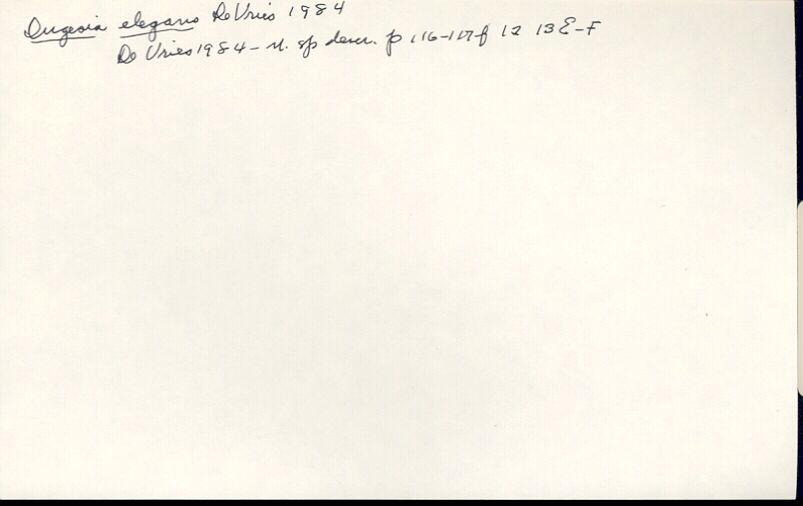 Dugesia elegans De Vries 1984
De Vries 1984 - n. sp descr. p 116-117 f 12 13 E-F